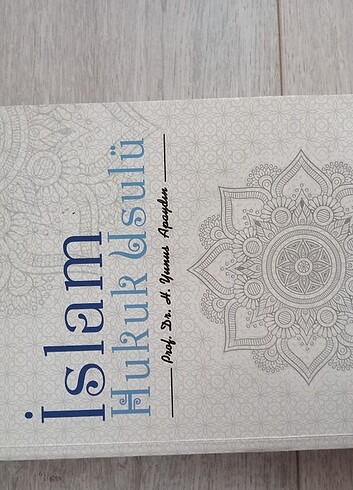 İslam
Hukuk Usulü
Prof. Dr. H. Yunus Apaydın